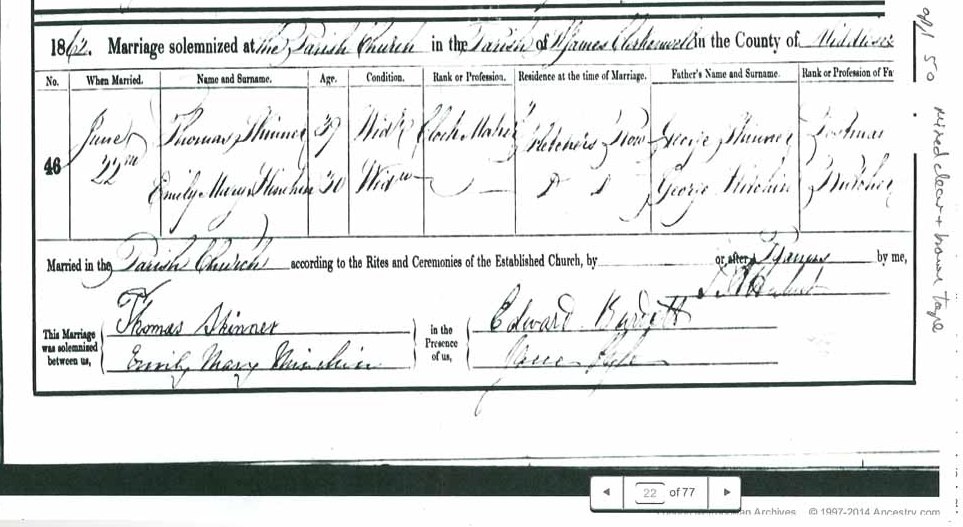 1862. Marriage solemnized at the Parish Church in the Parish of St James Clerkenwell in the County of Middlesex
No. When Married. Name and Surname. Age. Condition. Rank or Profession. Residence at the time of Marriage. Father's Name and Surname. Rank or Profession of Fa
46 June 22nd Thomas Skinner 39 Widr Clock Maker Fletchers Row George Skinner Postman
Emily Mary Minchin 30 Widw — D D George Kitchin Butcher
Married in the Parish Church according to the Rites and Ceremonies of the Established Church, by or after Banns by me,
This Marriage was solemnized between us, Thomas Skinner
Emily Mary Minchin
in the Presence of us, Edward Burgett
Jane
opl 50 mixed clear + brown tape
22 of 77
an Archives © 1997-2014 Ancestry.com